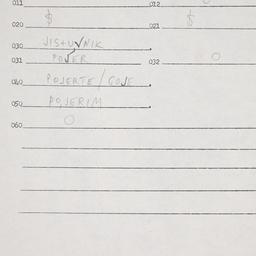 011 012
020 $ 021 $
030 JISTUVNIK
031 POJER 032 O
040 POJERTE / GOJE
050 POJERIM
060 O